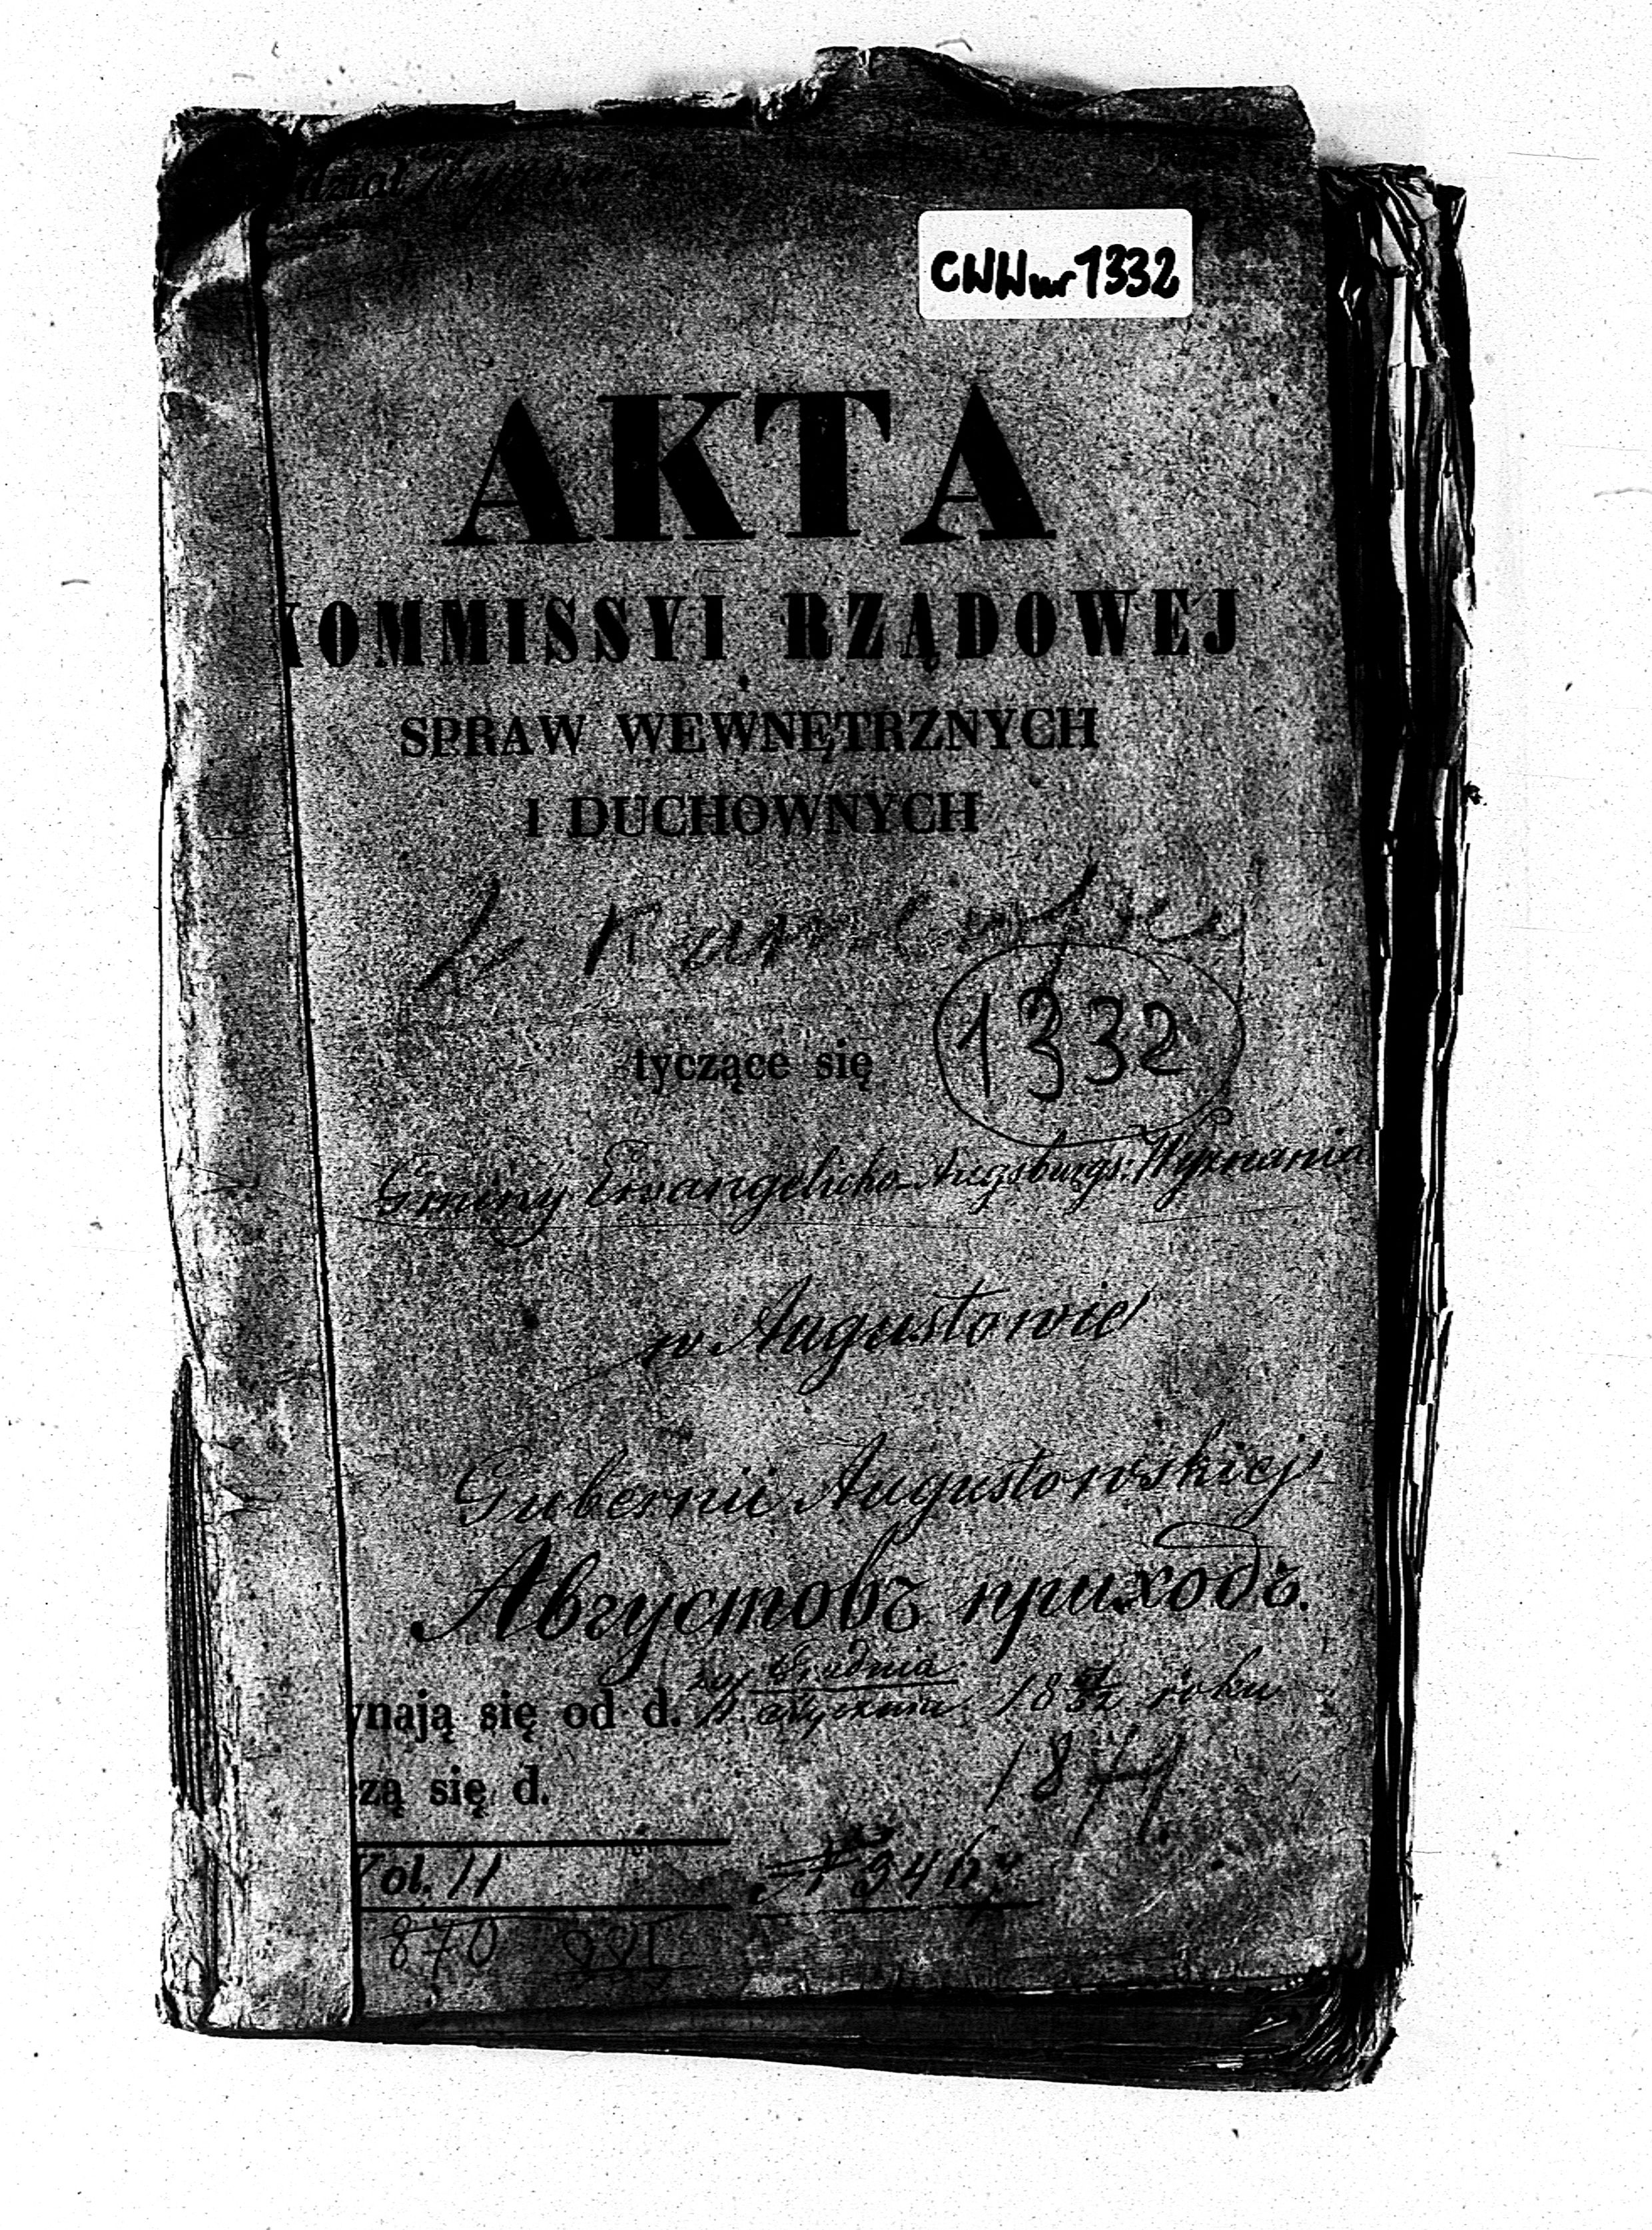 dział
CWW nr 1332
AKTA
KOMMISSYI RZĄDOWEJ
SPRAW WEWNĘTRZNYCH
I DUCHOWNYCH
1332
tyczące się
Gminy Ewangelicko-Augsburgs: Wyznania
w Augustowie
Gubernii Augustowskiej
Августовъ приходъ.
Grudnia
ynają się od d. Stycznia 18 51/52 roku
1871
zą się d.
Vol. 11
№ 346
870